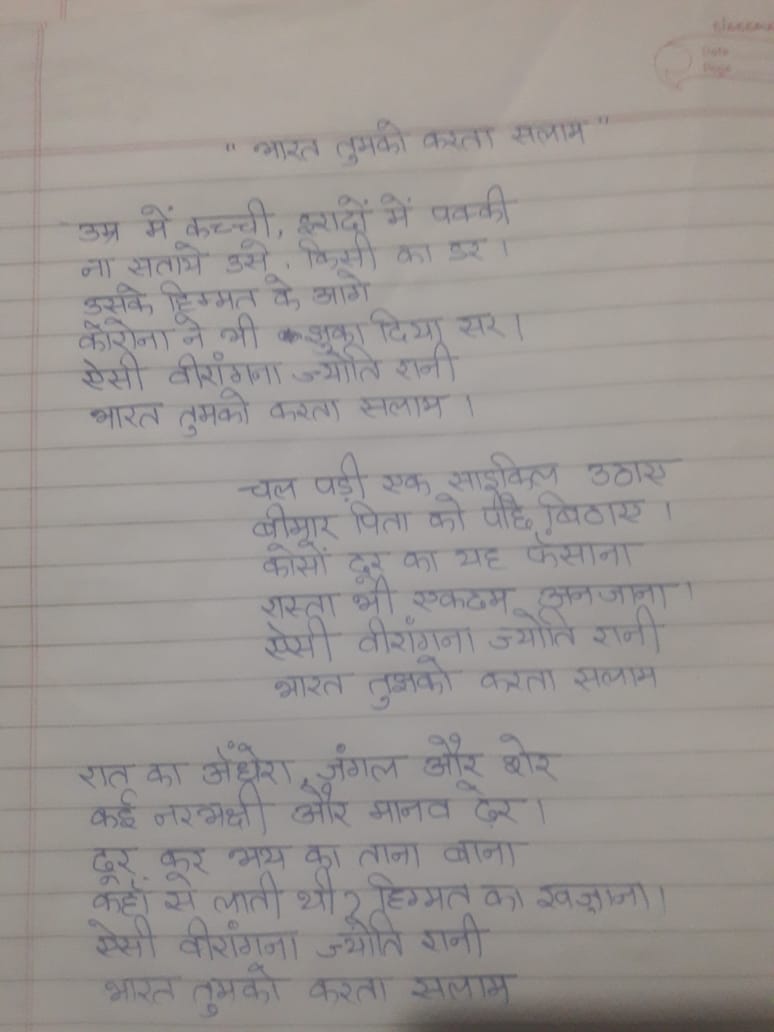 classmate
Date
Page
" भारत तुमको करता सलाम "
उम्र में कच्ची, इरादों में पक्की
ना सताये उसे, किसी का डर ।
उसके हिम्मत के आगे
कोरोना ने भी झुका दिया सर ।
ऐसी वीरांगना ज्योति रानी
भारत तुमको करता सलाम ।
चल पड़ी एक साइकिल उठाए
बीमार पिता को पीछे बिठाए ।
कोसों दूर का यह फँसाना
रास्ता भी एकदम अनजाना ।
ऐसी वीरांगना ज्योति रानी
भारत तुझको करता सलाम
रात का अँधेरा, जंगल और शेर
कई नरभक्षी और मानव ढेर ।
दूर कर भय का ताना बाना
कहाँ से लाती थी? हिम्मत का खज़ाना ।
ऐसी वीरांगना ज्योति रानी
भारत तुमको करता सलाम